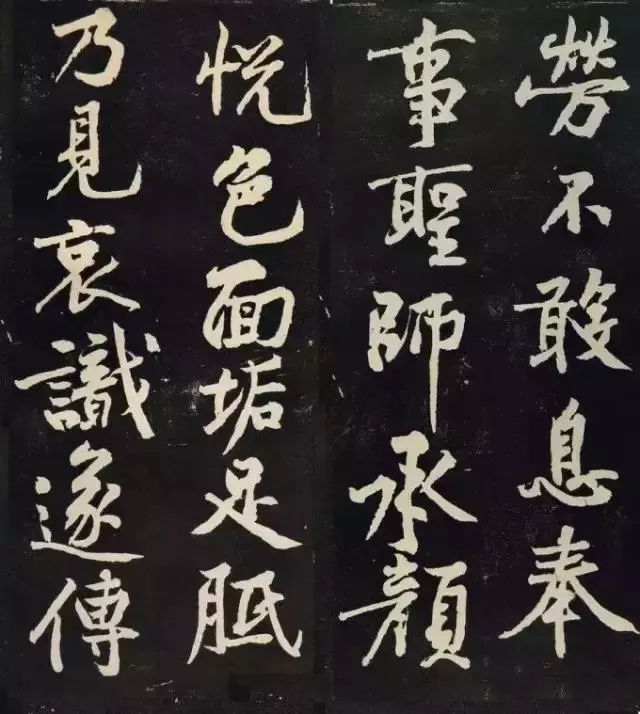 勞不敢息奉
事聖師承顏
悅色面垢足胝
乃見哀識遂傳